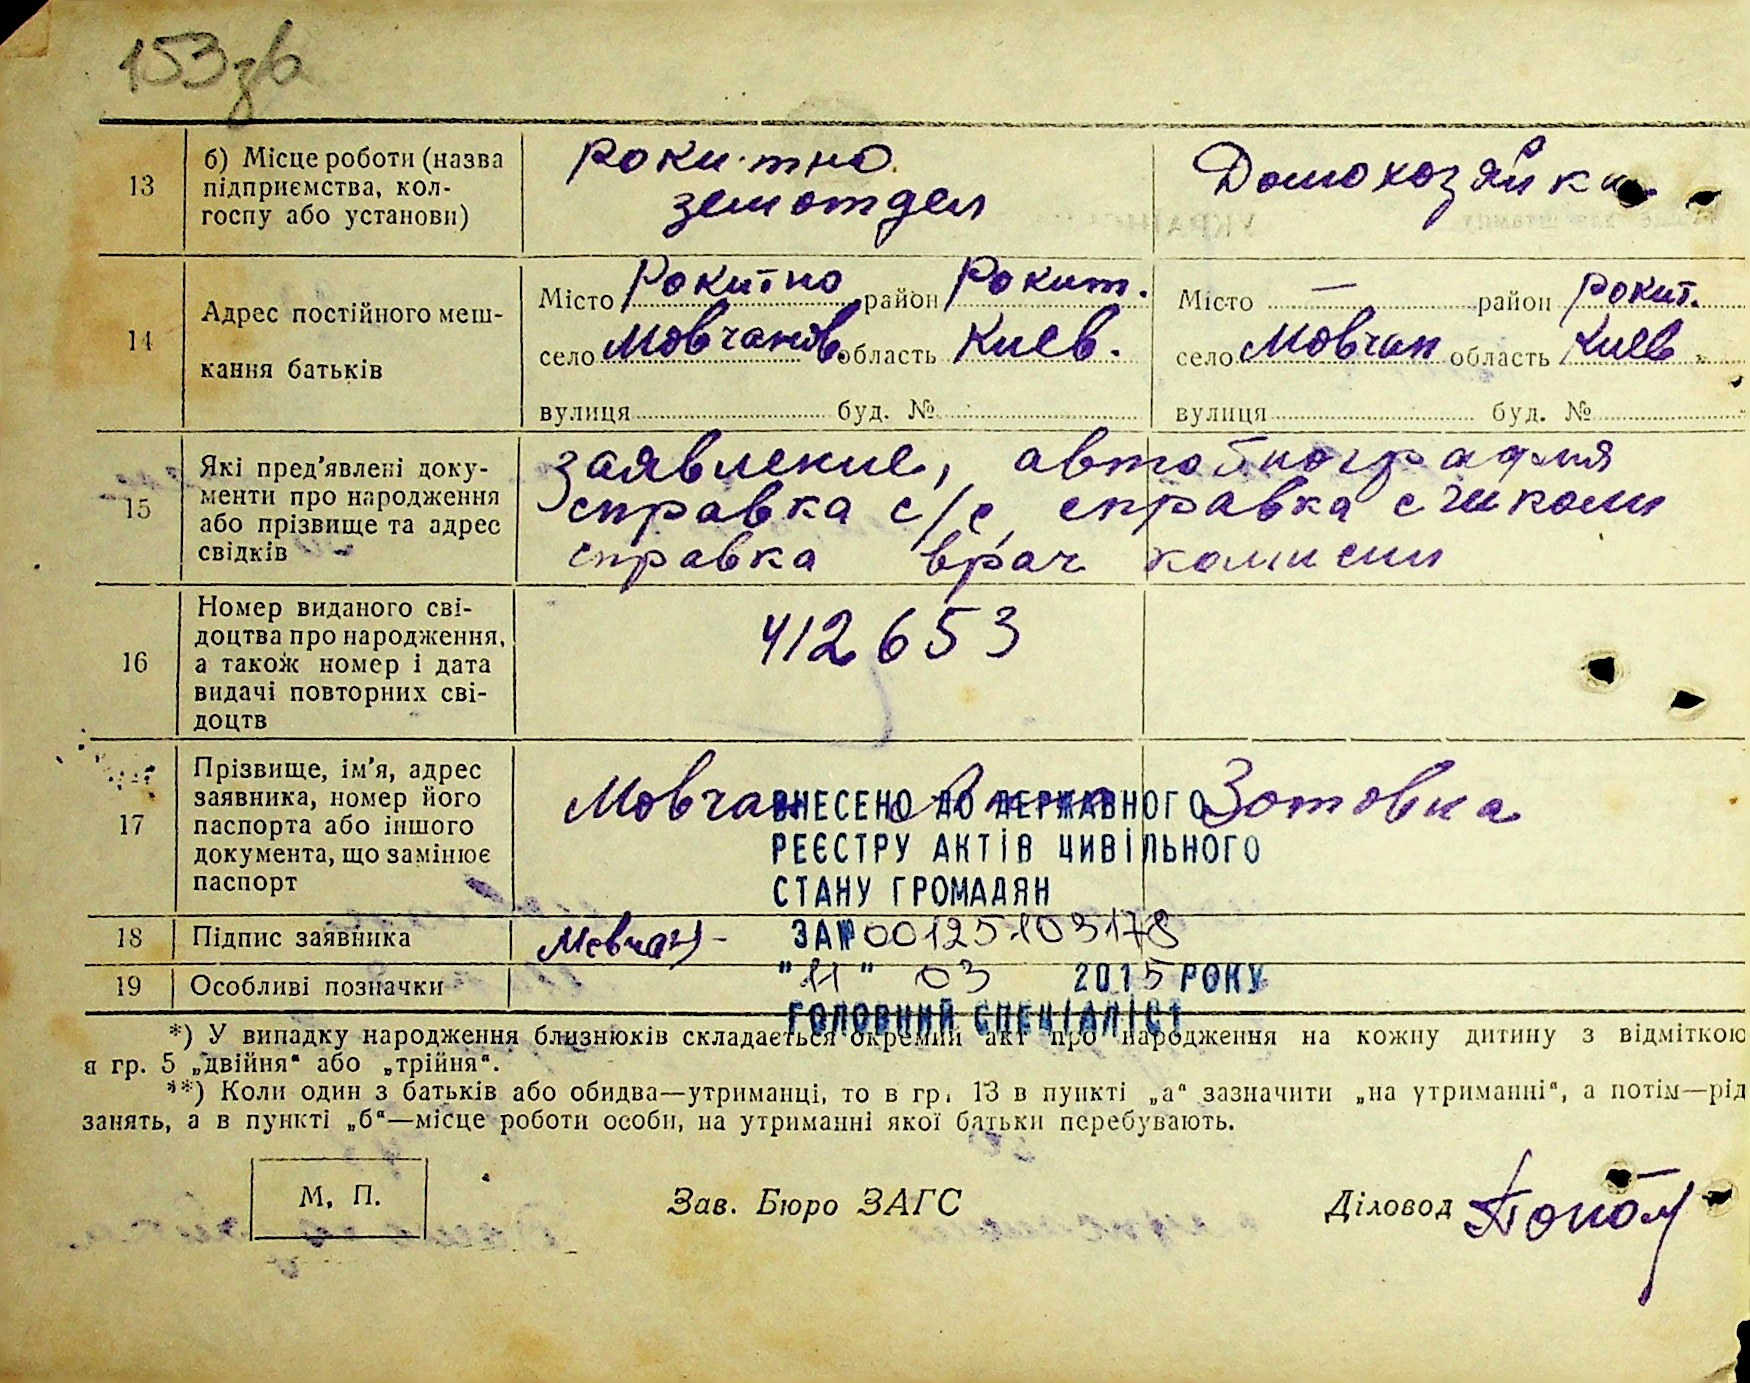 153зв
13
б) Місце роботи (назва
підприємства, кол-
госпу або установи)
Рокитно
земотдел
Домохозяйка
14
Адрес постійного меш-
кання батьків
Місто Рокитно район Рокит.
село Мовчанов. область Киев.
вулиця буд. №
Місто — район Рокит.
село Мовчан область Киев
вулиця буд. №
15
Які пред'явлені доку-
менти про народження
або прізвище та адрес
свідків
заявление, автобиография
справка с/с, справка с школи
справка врач комисии
16
Номер виданого сві-
доцтва про народження,
а також номер і дата
видачі повторних сві-
доцтв
412653
17
Прізвище, ім'я, адрес
заявника, номер його
паспорта або іншого
документа, що замінює
паспорт
Мовчан Зотовна
ВНЕСЕНО ДО ДЕРЖАВНОГО
РЕЄСТРУ АКТІВ ЦИВІЛЬНОГО
СТАНУ ГРОМАДЯН
ЗА № 00125103178
"11" 03 2015 РОКУ
ГОЛОВНИЙ СПЕЦІАЛІСТ
18
Підпис заявника
Мовчан
19
Особливі позначки
*) У випадку народження близнюків складається окремий акт про народження на кожну дитину з відміткою
в гр. 5 „двійня“ або „трійня“.
**) Коли один з батьків або обидва—утриманці, то в гр. 13 в пункті „а“ зазначити „на утриманні“, а потім—рід
занять, а в пункті „б“—місце роботи особи, на утриманні якої батьки перебувають.
М. П.
Зав. Бюро ЗАГС
Діловод